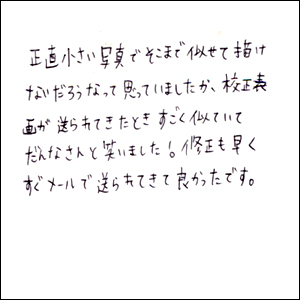 正直小さい写真でそこまで似せて描け
ないだろうなって思っていましたが、校正表
画が送られてきたときすごく似ていて
だんなさんと笑いました!修正も早く
すぐメールで送られてきて良かったです。